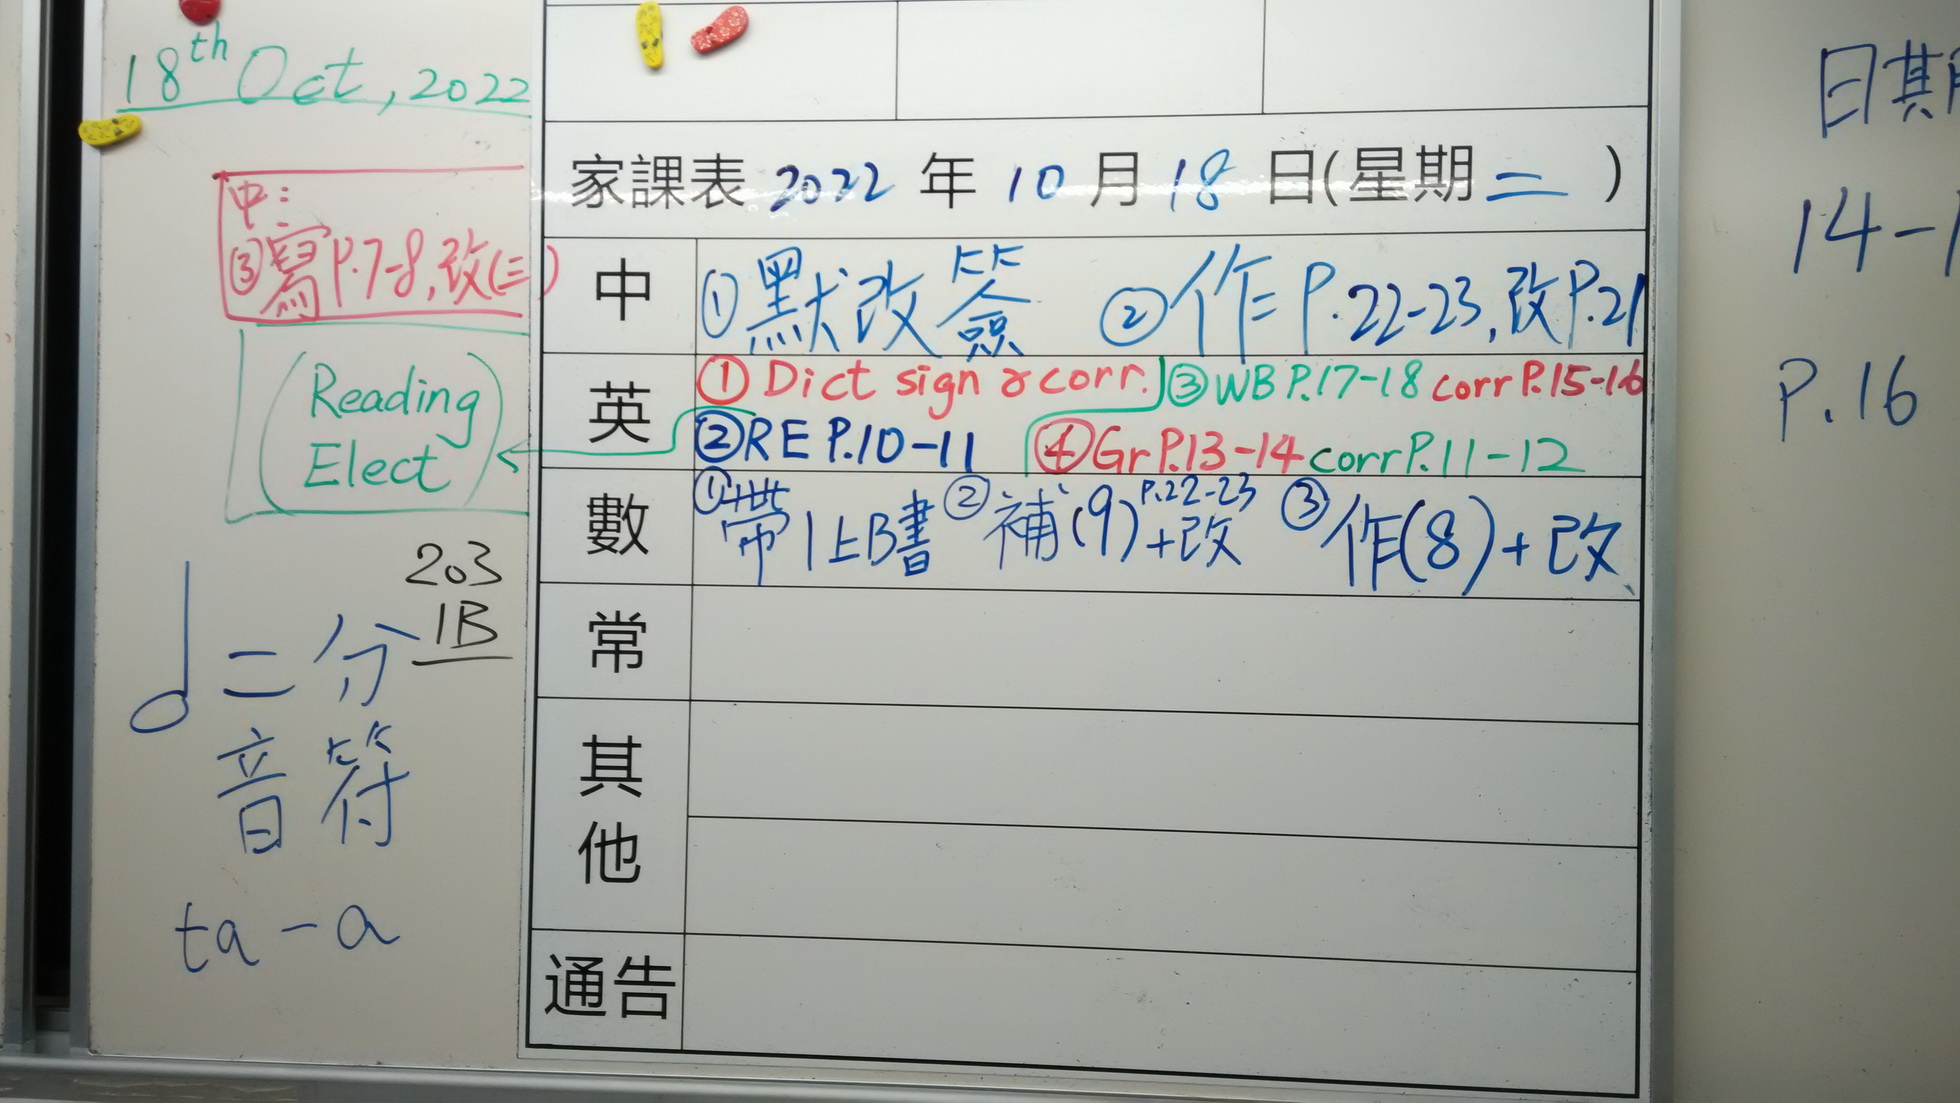 18th Oct, 2022
中:
③寫P.7-8,改(三)
(Reading
Elect)
203
1B
二分
音符
ta-a
家課表 2022 年 10 月 18 日(星期二)
中 ①默改簽 ②作P.22-23,改P.21
英 ①Dict sign & corr. ③WB P.17-18 corr P.15-16
②RE P.10-11 ④Gr P.13-14 corr P.11-12
數 ①帶1上B書 ②補(9)P.22-23+改 ③作(8)+改
常
其
他
通告
日期
14-1
P.16